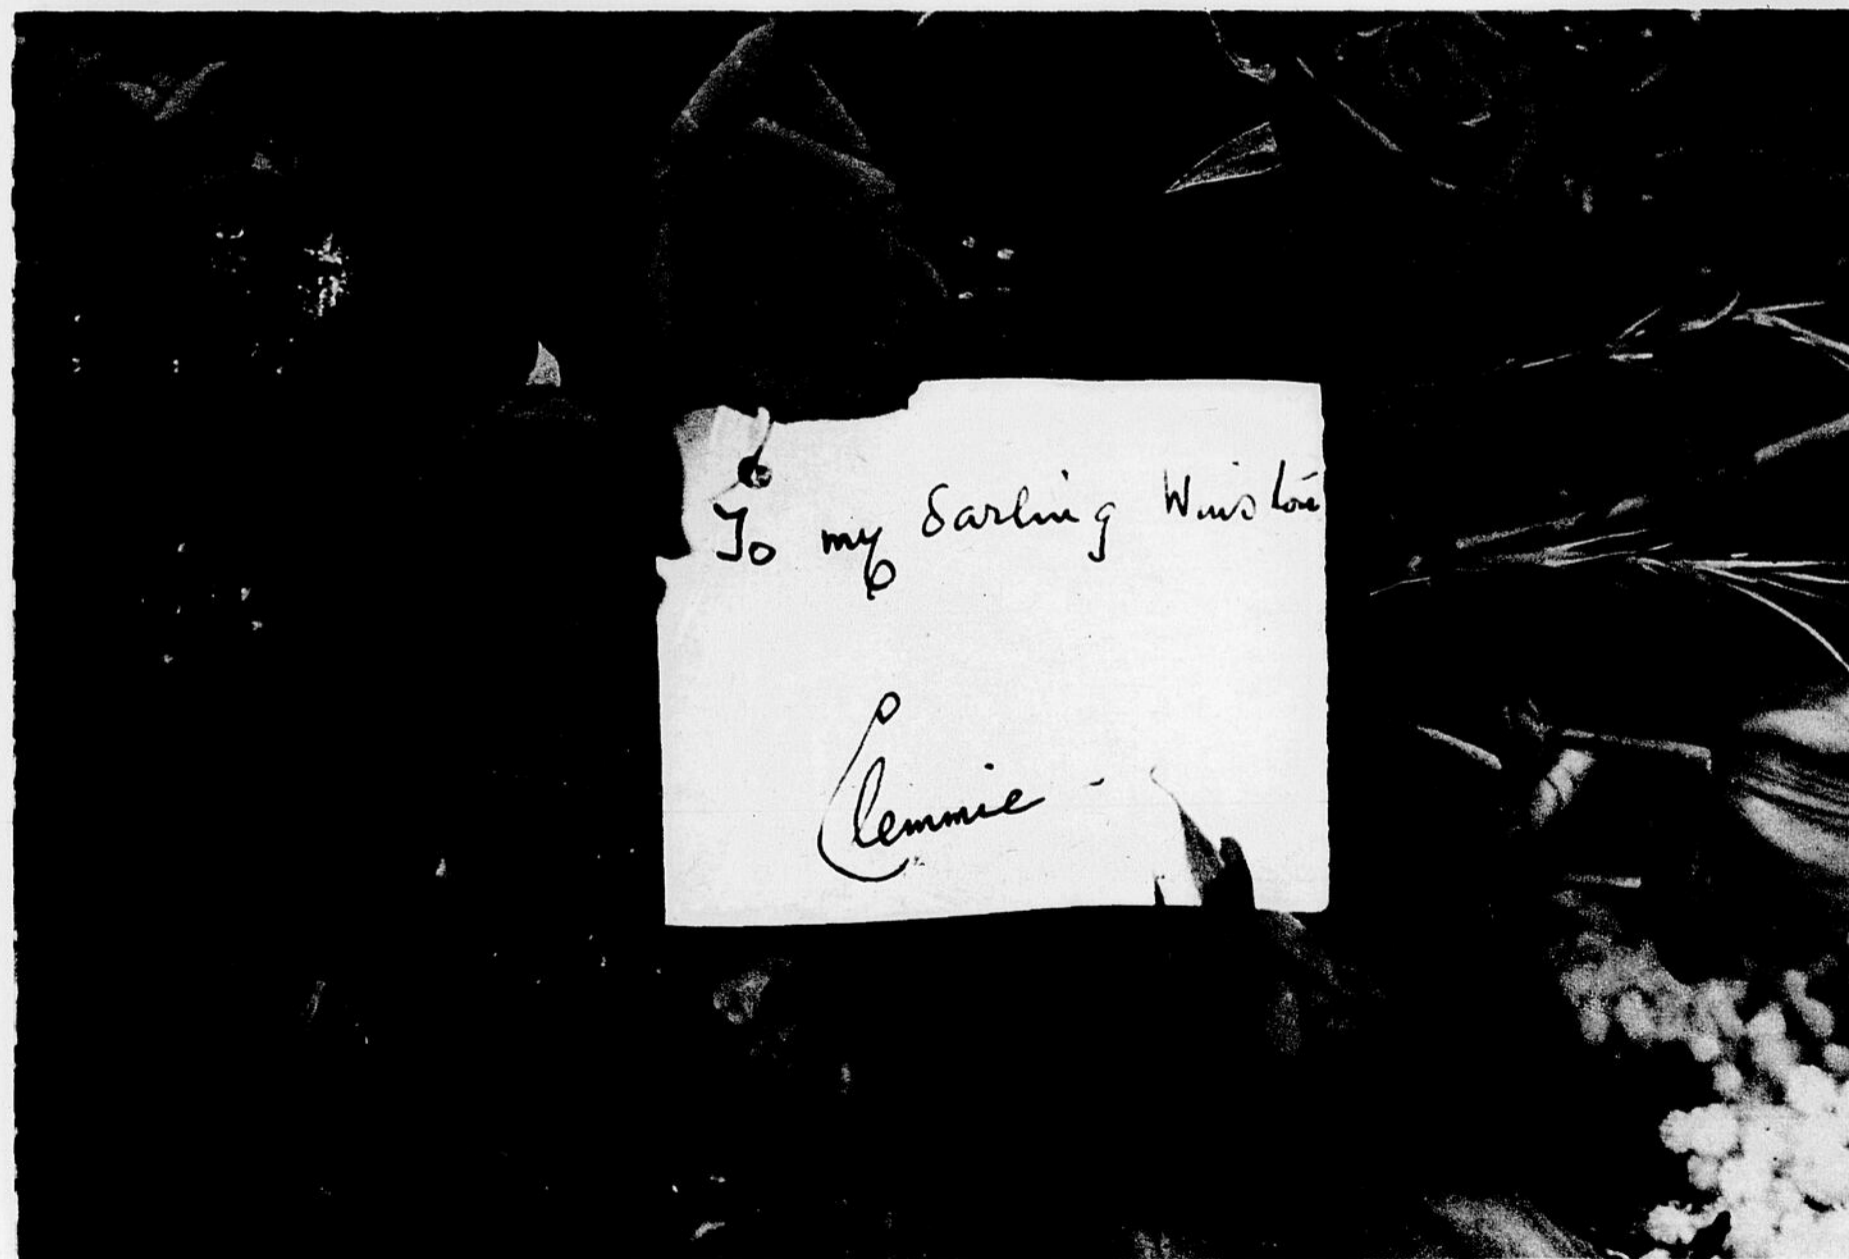 To my darling Winston
Clemmie -